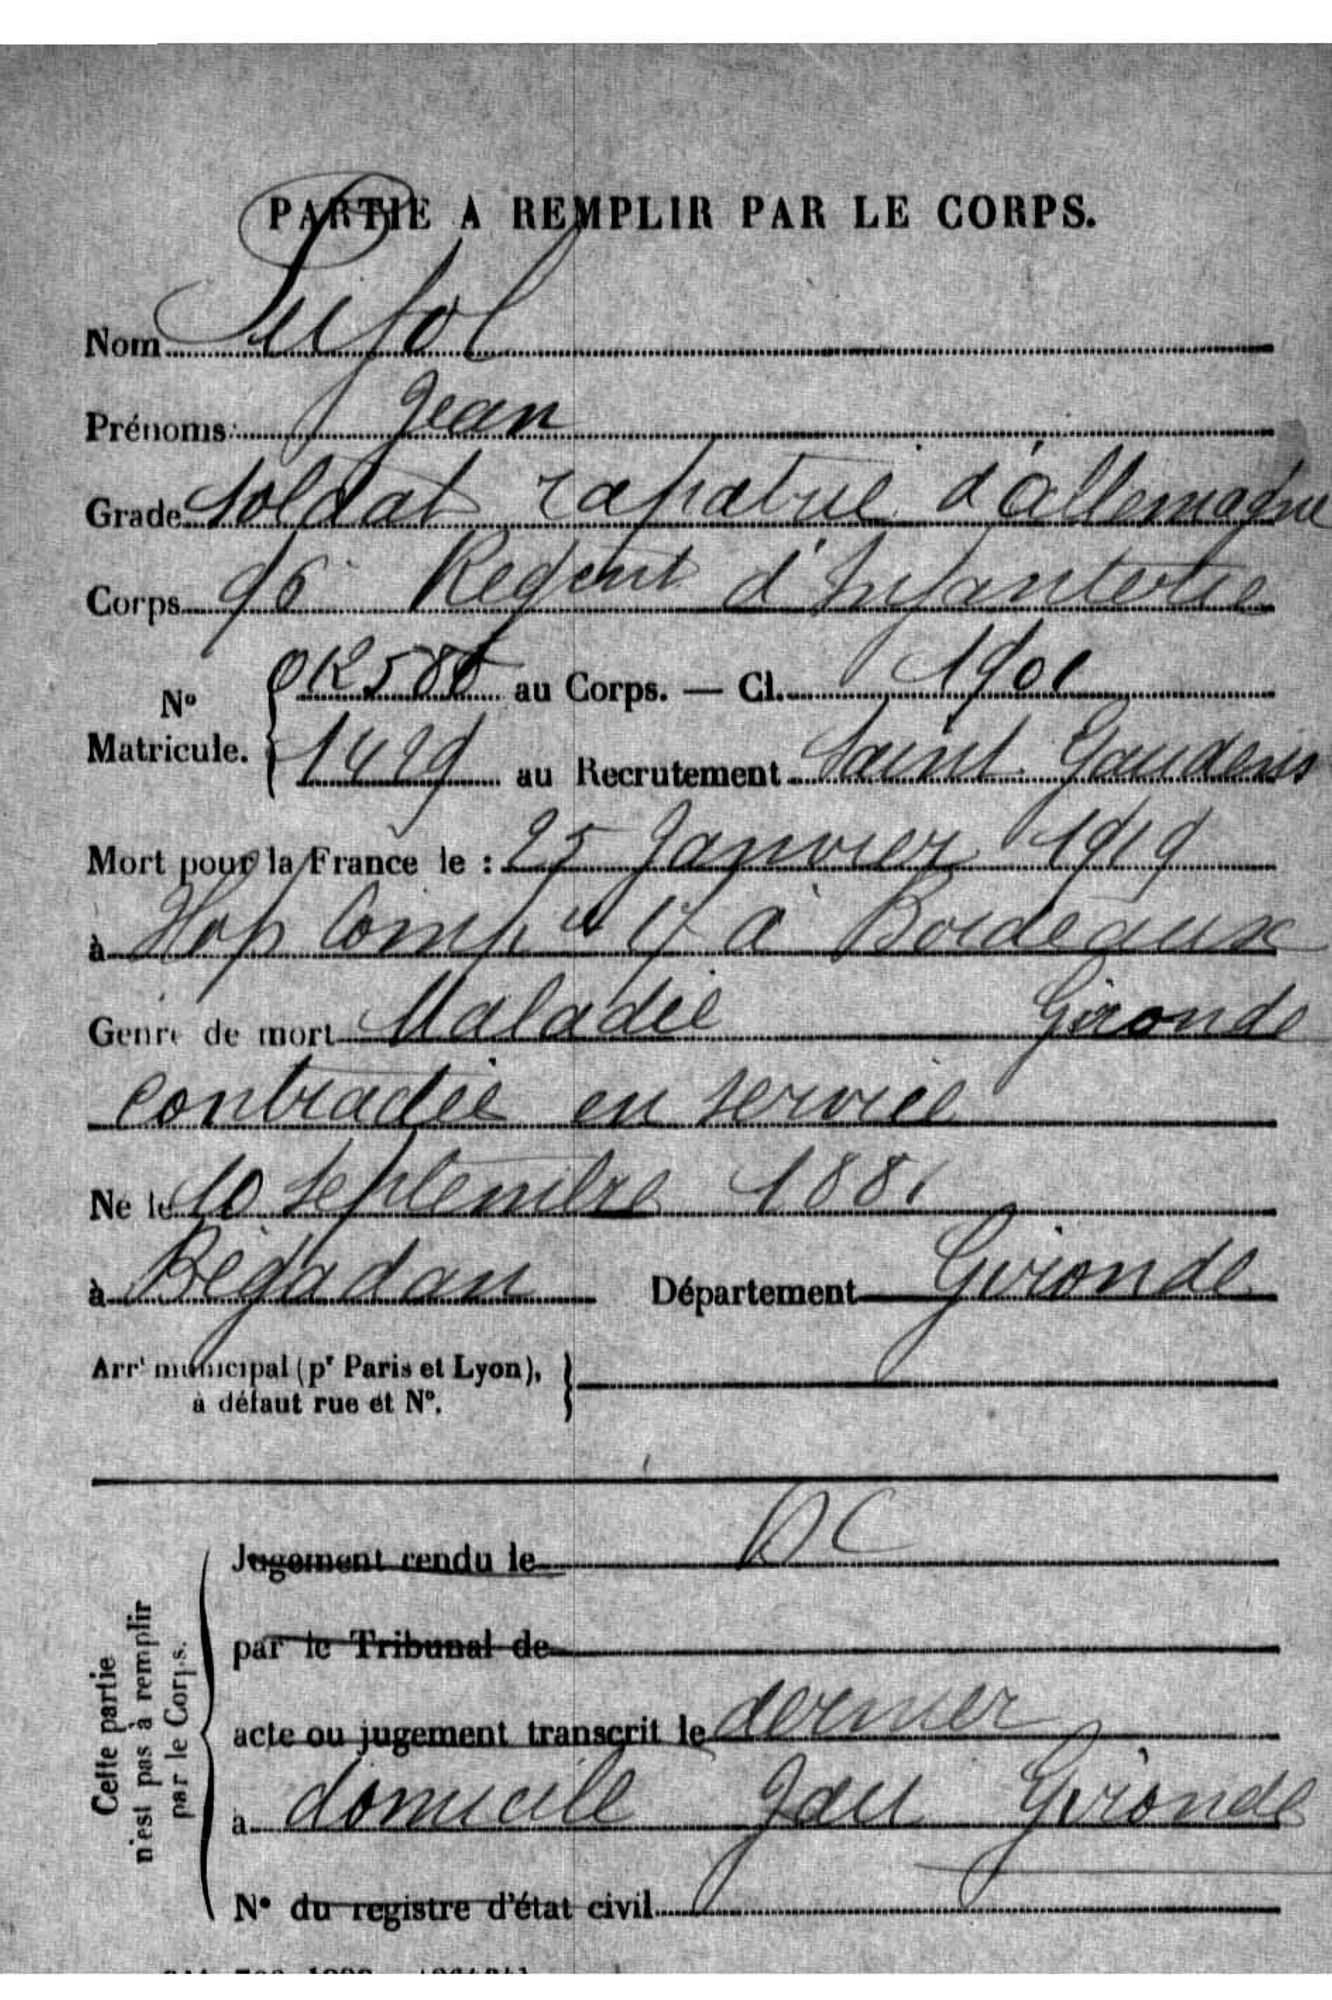 PARTIE A REMPLIR PAR LE CORPS.
Nom Pujol
Prénoms: Jean
Grade soldat rapatrié d'allemagne
Corps 96 Regent d'Infanterie
Nº Matricule. { 012586 au Corps. — Cl. 1901
1429 au Recrutement Saint Gaudens
Mort pour la France le : 25 Janvier 1919
à Hop Comp 17 à Bordeaux
Genre de mort Maladie Gironde
contractée en service
Né le 10 septembre 1881
à Bégadan Département Gironde
Arrt municipal (pr Paris et Lyon), }
à défaut rue et Nº.
Cette partie
n'est pas à remplir
par le Corps.
Jugement rendu le DC
par le Tribunal de
acte ou jugement transcrit le dernier
à domicile Jau Gironde
Nº du registre d'état civil